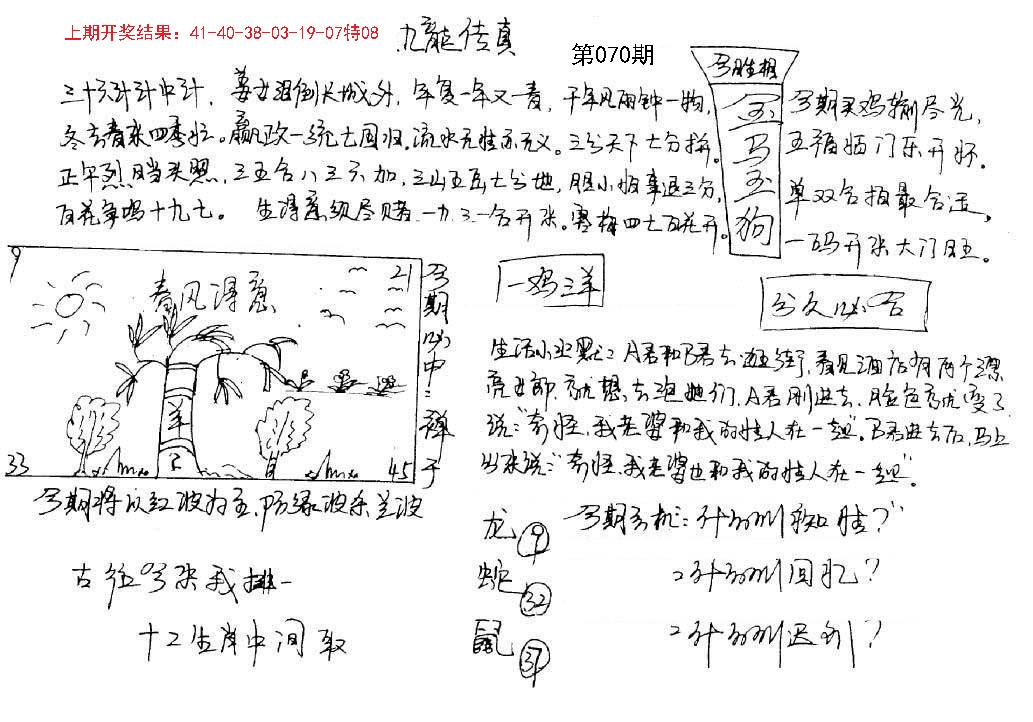 上期开奖结果：41-40-38-03-19-07特08
九龍传真
第070期
三十六计计中计，姜女泪倒长城外，年复一年又一春，千年风雨钟一物，
冬去春来四季忙。嬴政一统七国归。流水无情亦无义。三分天下七分拼。
正午烈日当头照，三五合八三六加，三山五岳七分地，胆小怕事退三分，
百花争鸣十九七。生得意须尽赌。一九三一合开张。寒梅四七百花开。
今期买鸡输尽光，
五福临门乐开怀。
单双合拍最合适。
一码开张大门旺。
金
马
玉
狗
9
21
春风得意
羊
33
45
今期必中：禅子
一鸡三羊
分久必合
生活小幽默：A君和B君去逛街，看见酒店有两个漂
亮女郎，就想去泡她们，A君刚进去，脸色就变了
说：“奇怪，我老婆和我的情人在一起”。B君进去后，马上
出来说：“奇怪，我老婆也和我的情人在一起”。
今期将以红波为主，防绿波杀兰波
龙 9
蛇 32
鼠 37
古往今来我排一
十二生肖中间取
今期玄机：
回忆？